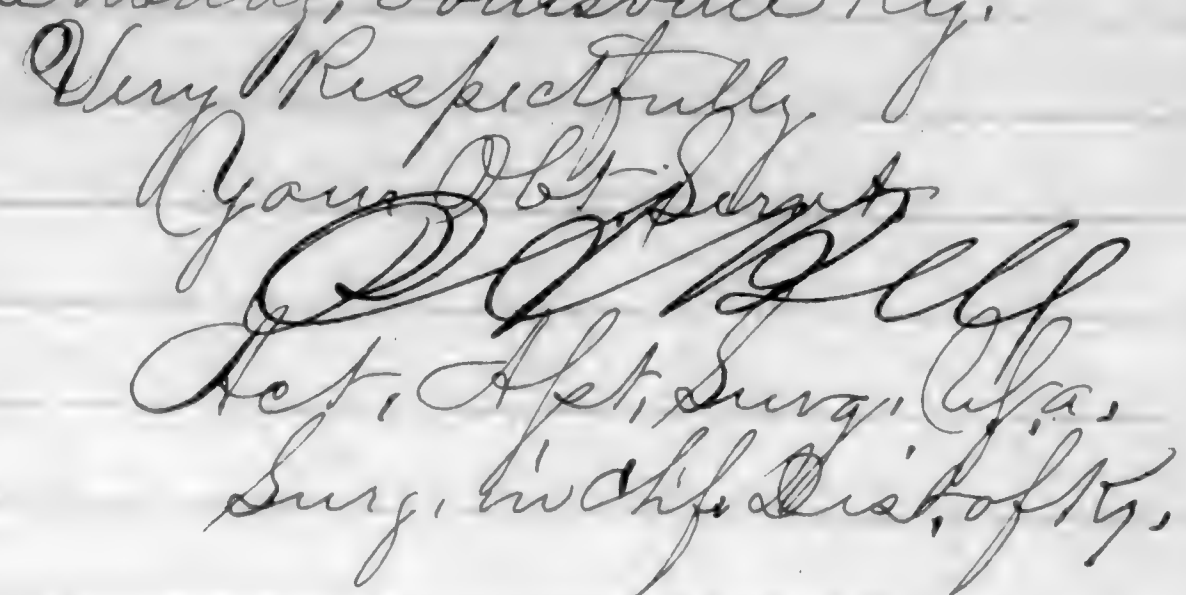 Louisville Ky.
Very Respectfully
Your Obt. Servt.
Bell
Act. Asst. Surg. U.S.a.
Surg. in Chf. Dist. of Ky.